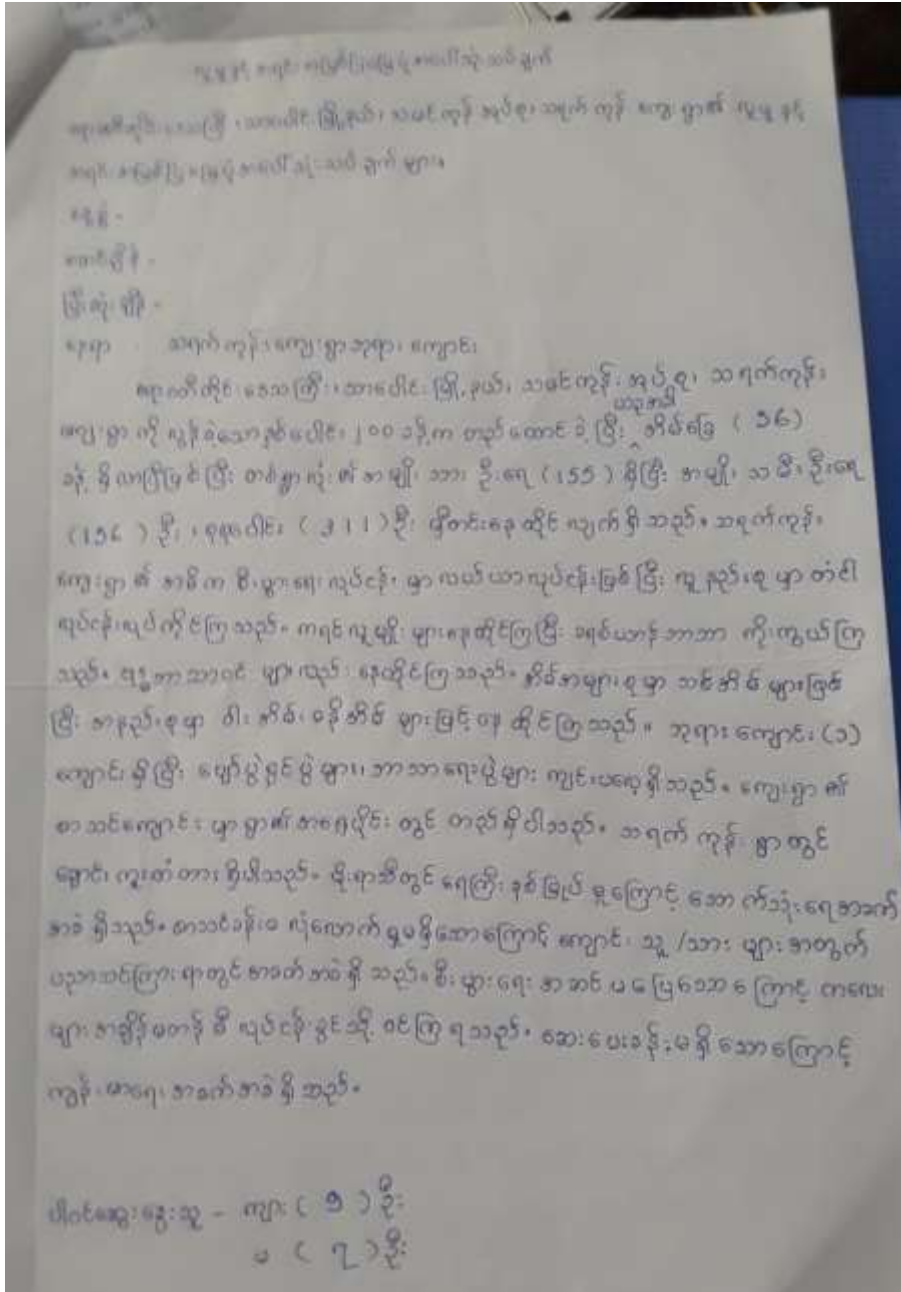 လူမှု နှင့် အရင်းအမြစ်ပြမြေပုံအပေါ်သုံးသပ်ချက်
ဧရာဝတီတိုင်းဒေသကြီး၊ သာပေါင်းမြို့နယ်၊ သမင်ကုန်းအုပ်စု၊ သရက်ကုန်းကျေးရွာ၏ လူမှု နှင့်
အရင်းအမြစ်ပြမြေပုံအပေါ်သုံးသပ်ချက်များ။
နေ့စွဲ -
စတင်ချိန် -
ပြီးဆုံးချိန် -
နေရာ - သရက်ကုန်းကျေးရွာဘုရားကျောင်း
ဧရာဝတီတိုင်းဒေသကြီး၊ သာပေါင်းမြို့နယ်၊ သမင်ကုန်းအုပ်စု၊ သရက်ကုန်း
ကျေးရွာကို လွန်ခဲ့သောနှစ်ပေါင်း ၂၀၀ ခန့်က တည်ထောင်ခဲ့ပြီး ယခုအခါ အိမ်ခြေ (56)
ခန့် ရှိလာပြီဖြစ်ပြီး တစ်ရွာလုံး၏ အမျိုးသား ဦးရေ (155) ရှိပြီး အမျိုးသမီးဦးရေ
(156) ဦး၊ စုစုပေါင်း (311) ဦး မှီတင်းနေထိုင်လျက်ရှိသည်။ သရက်ကုန်း
ကျေးရွာ၏ အဓိက စီးပွားရေးလုပ်ငန်းမှာ လယ်ယာလုပ်ငန်းဖြစ်ပြီး လူနည်းစုမှာ တံငါ
လုပ်ငန်းလုပ်ကိုင်ကြသည်။ ကရင်လူမျိုးများနေထိုင်ကြပြီး ခရစ်ယာန်ဘာသာ ကိုးကွယ်ကြ
သည်။ ဗုဒ္ဓဘာသာဝင်များလည်း နေထိုင်ကြသည်။ အိမ်အများစုမှာ သစ်အိမ်များဖြစ်
ပြီး အနည်းစုမှာ ဝါးအိမ်၊ ဓနိအိမ် များဖြင့် နေထိုင်ကြသည်။ ဘုရားကျောင်း (၁)
ကျောင်းရှိပြီး ပျော်ပွဲရွှင်ပွဲများ၊ ဘာသာရေးပွဲများ ကျင်းပလေ့ရှိသည်။ ကျေးရွာ၏
စာသင်ကျောင်းမှာ ရွာ၏အရှေ့ပိုင်းတွင် တည်ရှိပါသည်။ သရက်ကုန်းရွာတွင်
ချောင်းကူးတံတား ရှိပါသည်။ မိုးရာသီတွင် ရေကြီးနစ်မြုပ်မှုကြောင့် သောက်သုံးရေအခက်
အခဲ ရှိသည်။ စာသင်ခန်းမ လုံလောက်မှုမရှိသောကြောင့် ကျောင်းသူ/သား များအတွက်
ပညာသင်ကြားရာတွင် အခက်အခဲရှိသည်။ စီးပွားရေး အဆင်မပြေသောကြောင့် ကလေး
များ အချိန်မတန်မီ လုပ်ငန်းခွင်သို့ ဝင်ကြရသည်။ ဆေးပေးခန်းမရှိသောကြောင့်
ကျန်းမာရေး အခက်အခဲရှိသည်။
ပါဝင်ဆွေးနွေးသူ - ကျား (၅) ဦး
မ (၇) ဦး